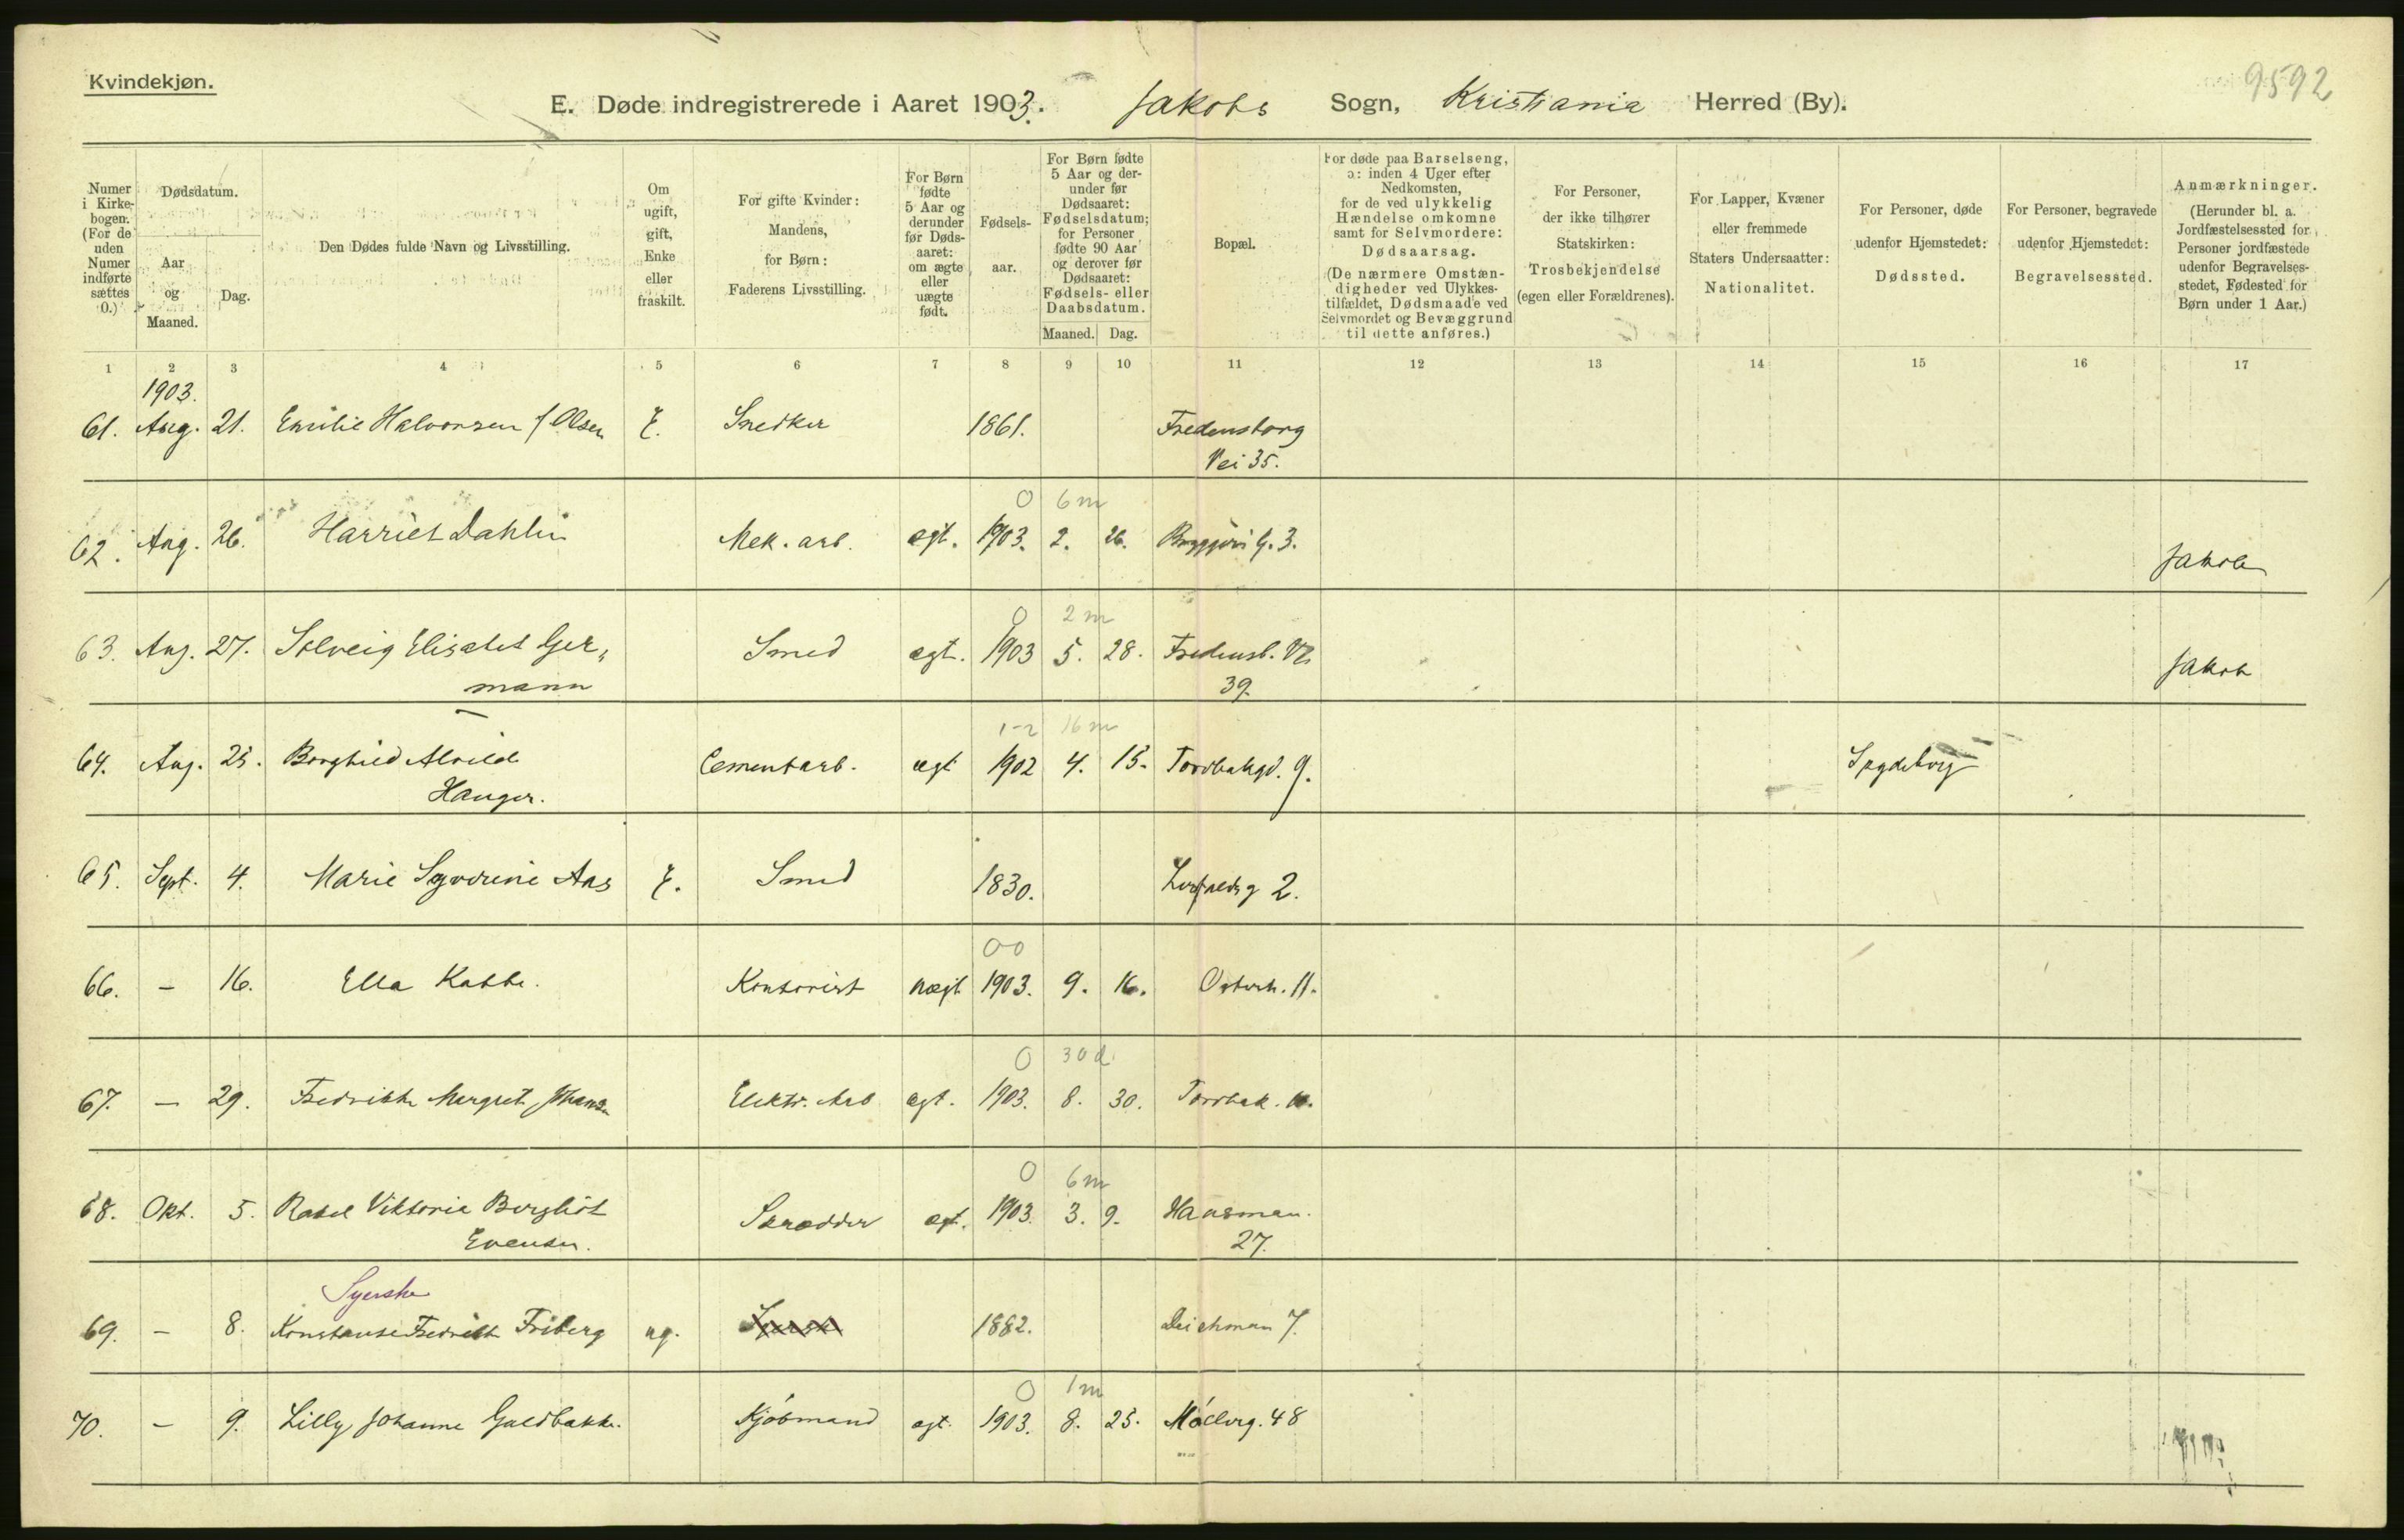 Kvindekjøn.
9592
E. Døde indregistrerede i Aaret 1903. Jakobs Sogn, Kristiania Herred (By).
Numer i Kirkebogen. (For de uden Numer indførte sættes 0.)
Dødsdatum.
Aar og Maaned.
Dag.
Den Dødes fulde Navn og Livsstilling.
Om ugift, gift, Enke eller fraskilt.
For gifte Kvinder: Mandens, for Børn: Faderens Livsstilling.
For Børn fødte 5 Aar og derunder før Dødsaaret: om ægte eller uægte født.
Fødselsaar.
For Børn fødte 5 Aar og derunder før Dødsaaret: Fødselsdatum; for Personer fødte 90 Aar og derover før Dødsaaret: Fødsels- eller Daabsdatum.
Maaned. Dag.
Bopæl.
For døde paa Barselseng, ɔ: inden 4 Uger efter Nedkomsten, for de ved ulykkelig Hændelse omkomne samt for Selvmordere: Dødsaarsag.
(De nærmere Omstændigheder ved Ulykkestilfældet, Dødsmaade ved Selvmordet og Bevæggrund til dette anføres.)
For Personer, der ikke tilhører Statskirken: Trosbekjendelse (egen eller Forældrenes).
For Lapper, Kvæner eller fremmede Staters Undersaatter: Nationalitet.
For Personer, døde udenfor Hjemstedet: Dødssted.
For Personer, begravede udenfor Hjemstedet: Begravelsessted.
Anmærkninger.
(Herunder bl. a. Jordfæstelsessted for Personer jordfæstede udenfor Begravelsesstedet, Fødested for Børn under 1 Aar.)
1 2 3 4 5 6 7 8 9 10 11 12 13 14 15 16 17
1903.
61. Aug. 21. Emilie Halvorsen f Olsen E. Snedker 1861. Fredensborg
Vei 35.
0 6 m
62. Aug. 26. Harriet Dahlin Mek. arb. ægt. 1903. 2. 26. G. 3. Jakob
0 2 m
63. Aug. 27. Solveig Elisabet Ger-
mann Smed ægt. 1903 5. 28. Fredensb. V
39. Jakob
1-2 16 m
64. Aug. 25. Borghild Alvilde
Hauger. Cementarb. ægt 1902 4. 15. Torvbakgd. 9. Spydeberg
65. Sept. 4. Marie Syverine Aas E. Smed 1830. 2.
00
66. – 16. Ella Kabbe. Kontorist uægt. 1903. 9. 16. 11.
0 30 d.
67. – 29. Fredrikke Margret Elektr. Arb ægt. 1903. 8. 30. Torvbak.
0 6 m
68. Okt. 5. Rakel Viktoria Bergliot
Evensen. Skrædder ægt. 1903. 3. 9. Hausman.
27.
Syerske
69. – 8. Konstanse Fredrikke Friberg ug. 1882. Deichman 7.
0 1 m
70. – 9. Lilly Johanne Guldbakke. Kjøbmand ægt. 1903. 8. 25. Møllerg. 48